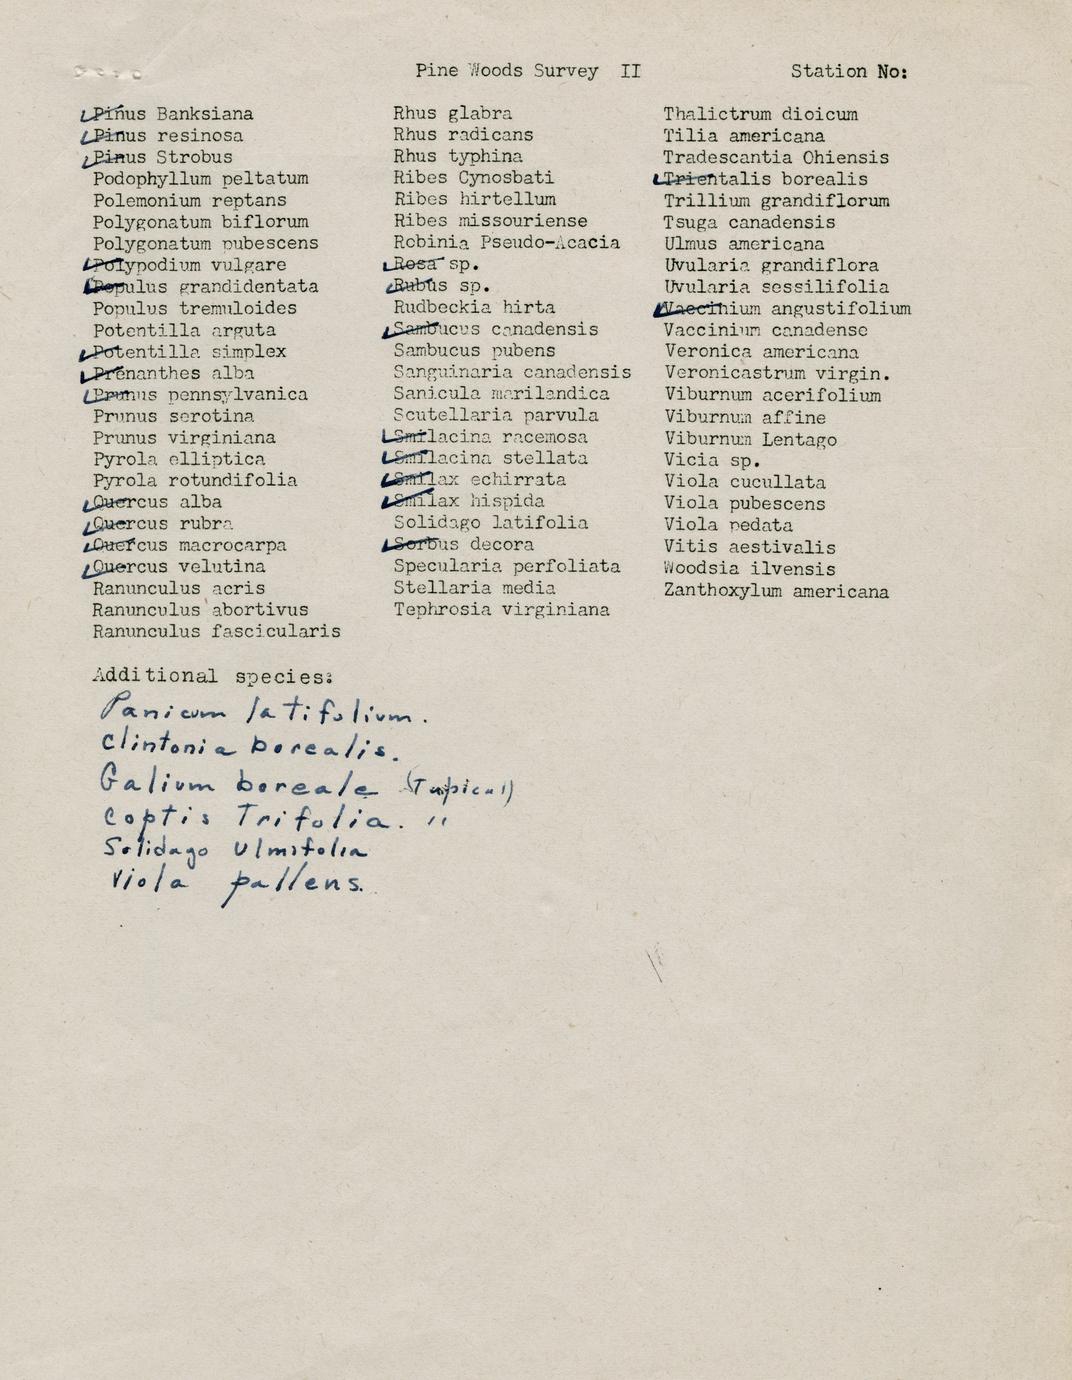 Pine Woods Survey II Station No:
Pinus Banksiana
Pinus resinosa
Pinus Strobus
Podophyllum peltatum
Polemonium reptans
Polygonatum biflorum
Polygonatum pubescens
Polypodium vulgare
Populus grandidentata
Populus tremuloides
Potentilla arguta
Potentilla simplex
Prenanthes alba
Prunus pennsylvanica
Prunus serotina
Prunus virginiana
Pyrola elliptica
Pyrola rotundifolia
Quercus alba
Quercus rubra
Quercus macrocarpa
Quercus velutina
Ranunculus acris
Ranunculus abortivus
Ranunculus fascicularis
Rhus glabra
Rhus radicans
Rhus typhina
Ribes Cynosbati
Ribes hirtellum
Ribes missouriense
Robinia Pseudo-Acacia
Rosa sp.
Rubus sp.
Rudbeckia hirta
Sambucus canadensis
Sambucus pubens
Sanguinaria canadensis
Sanicula marilandica
Scutellaria parvula
Smilacina racemosa
Smilacina stellata
Smilax echirrata
Smilax hispida
Solidago latifolia
Sorbus decora
Specularia perfoliata
Stellaria media
Tephrosia virginiana
Thalictrum dioicum
Tilia americana
Tradescantia Ohiensis
Trientalis borealis
Trillium grandiflorum
Tsuga canadensis
Ulmus americana
Uvularia grandiflora
Uvularia sessilifolia
Vaccinium angustifolium
Vaccinium canadense
Veronica americana
Veronicastrum virgin.
Viburnum acerifolium
Viburnum affine
Viburnum Lentago
Vicia sp.
Viola cucullata
Viola pubescens
Viola pedata
Vitis aestivalis
Woodsia ilvensis
Zanthoxylum americana
Additional species:
Panicum latifolium.
Clintonia borealis.
Galium boreale (Typical)
Coptis Trifolia. "
Solidago Ulmifolia
Viola pallens.